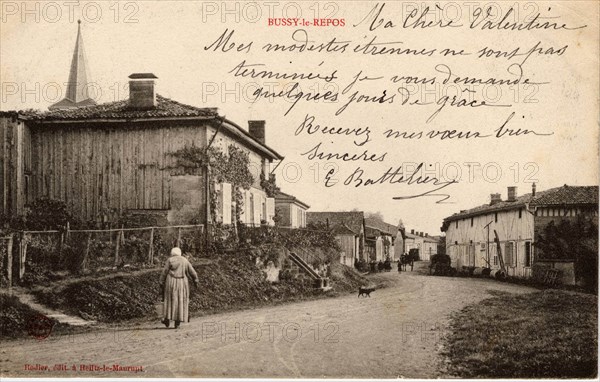 BUSSY-le-REPOS
Ma Chère Valentine
Mes modestes étrennes ne sont pas
terminées je vous demande
quelques jours de grâce
Recevez mes vœux bien
sincères
E Battelier
Radier, édit. à Heiltz-le-Maurupt
PHOTO12